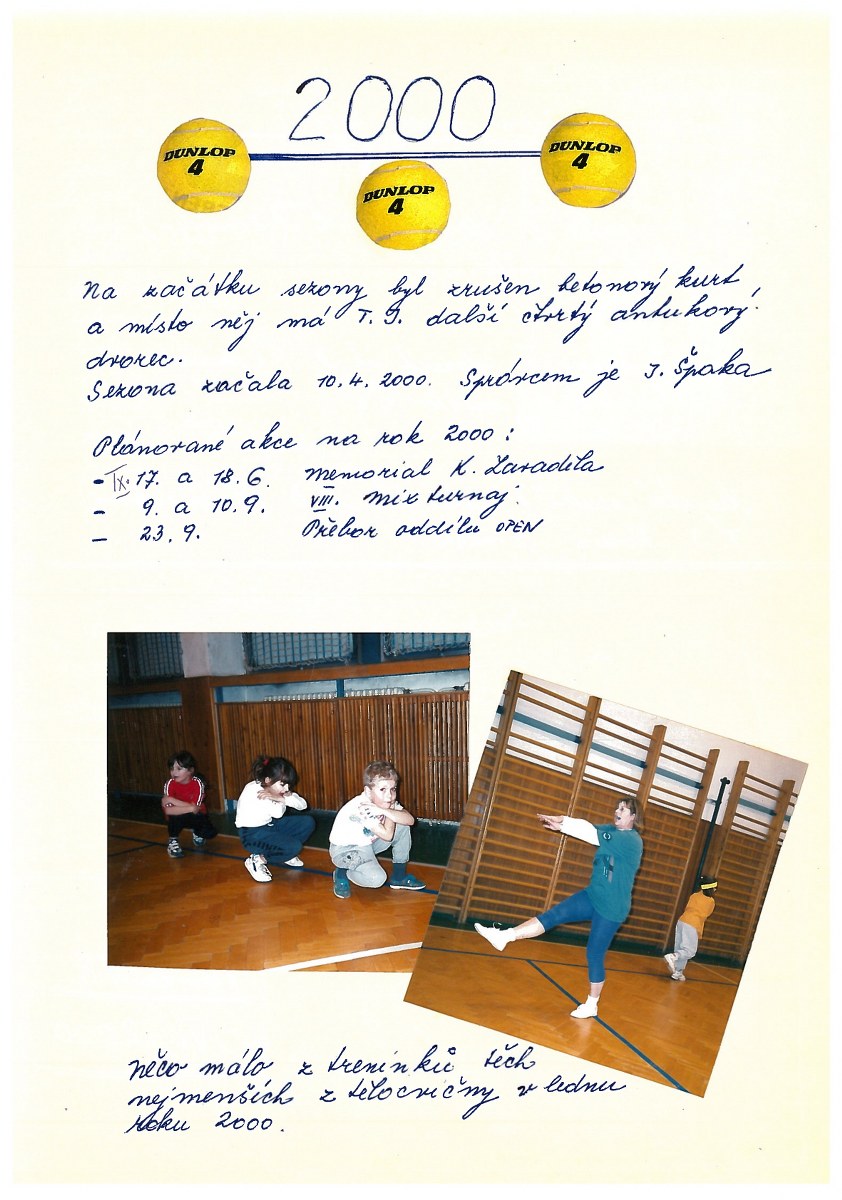 2000
DUNLOP
4
DUNLOP
4
DUNLOP
4
Na začátku sezony byl zrušen betonový kurt
a místo něj má T.J. další čtvrtý antukový
dvorec.
Sezona začala 10.4.2000. Správcem je J. Špaka
Plánované akce na rok 2000:
- IX. 17. a 18.6. Memorial K. Zaradila
- 9. a 10.9. VIII. Mix turnaj.
- 23.9. Přebor oddílu OPEN
Něco málo z treninků těch
nejmenších z tělocvičny v lednu
roku 2000.